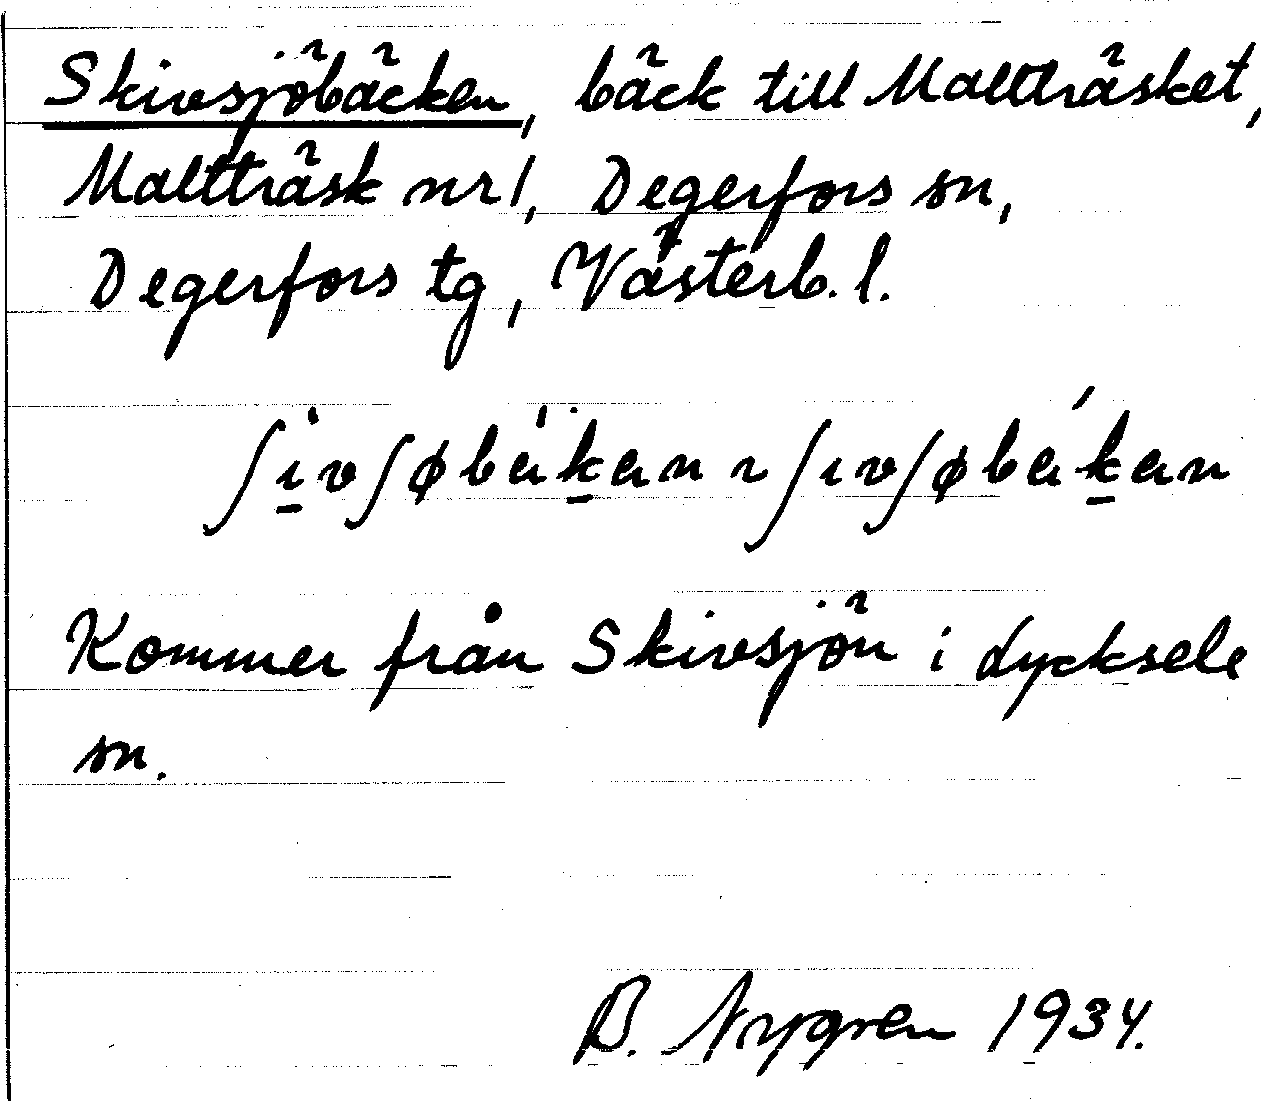 Skivsjöbäcken, bäck till Malträsket,
Malträsk nr 1, Degerfors sn,
Degerfors tg, Västerb. l.
ʃi̲vʃøbäk̲an ~ ʃɩvʃøbak̲an
Kommer från Skivsjön i Lycksele
sn.
B. Nygren 1934.